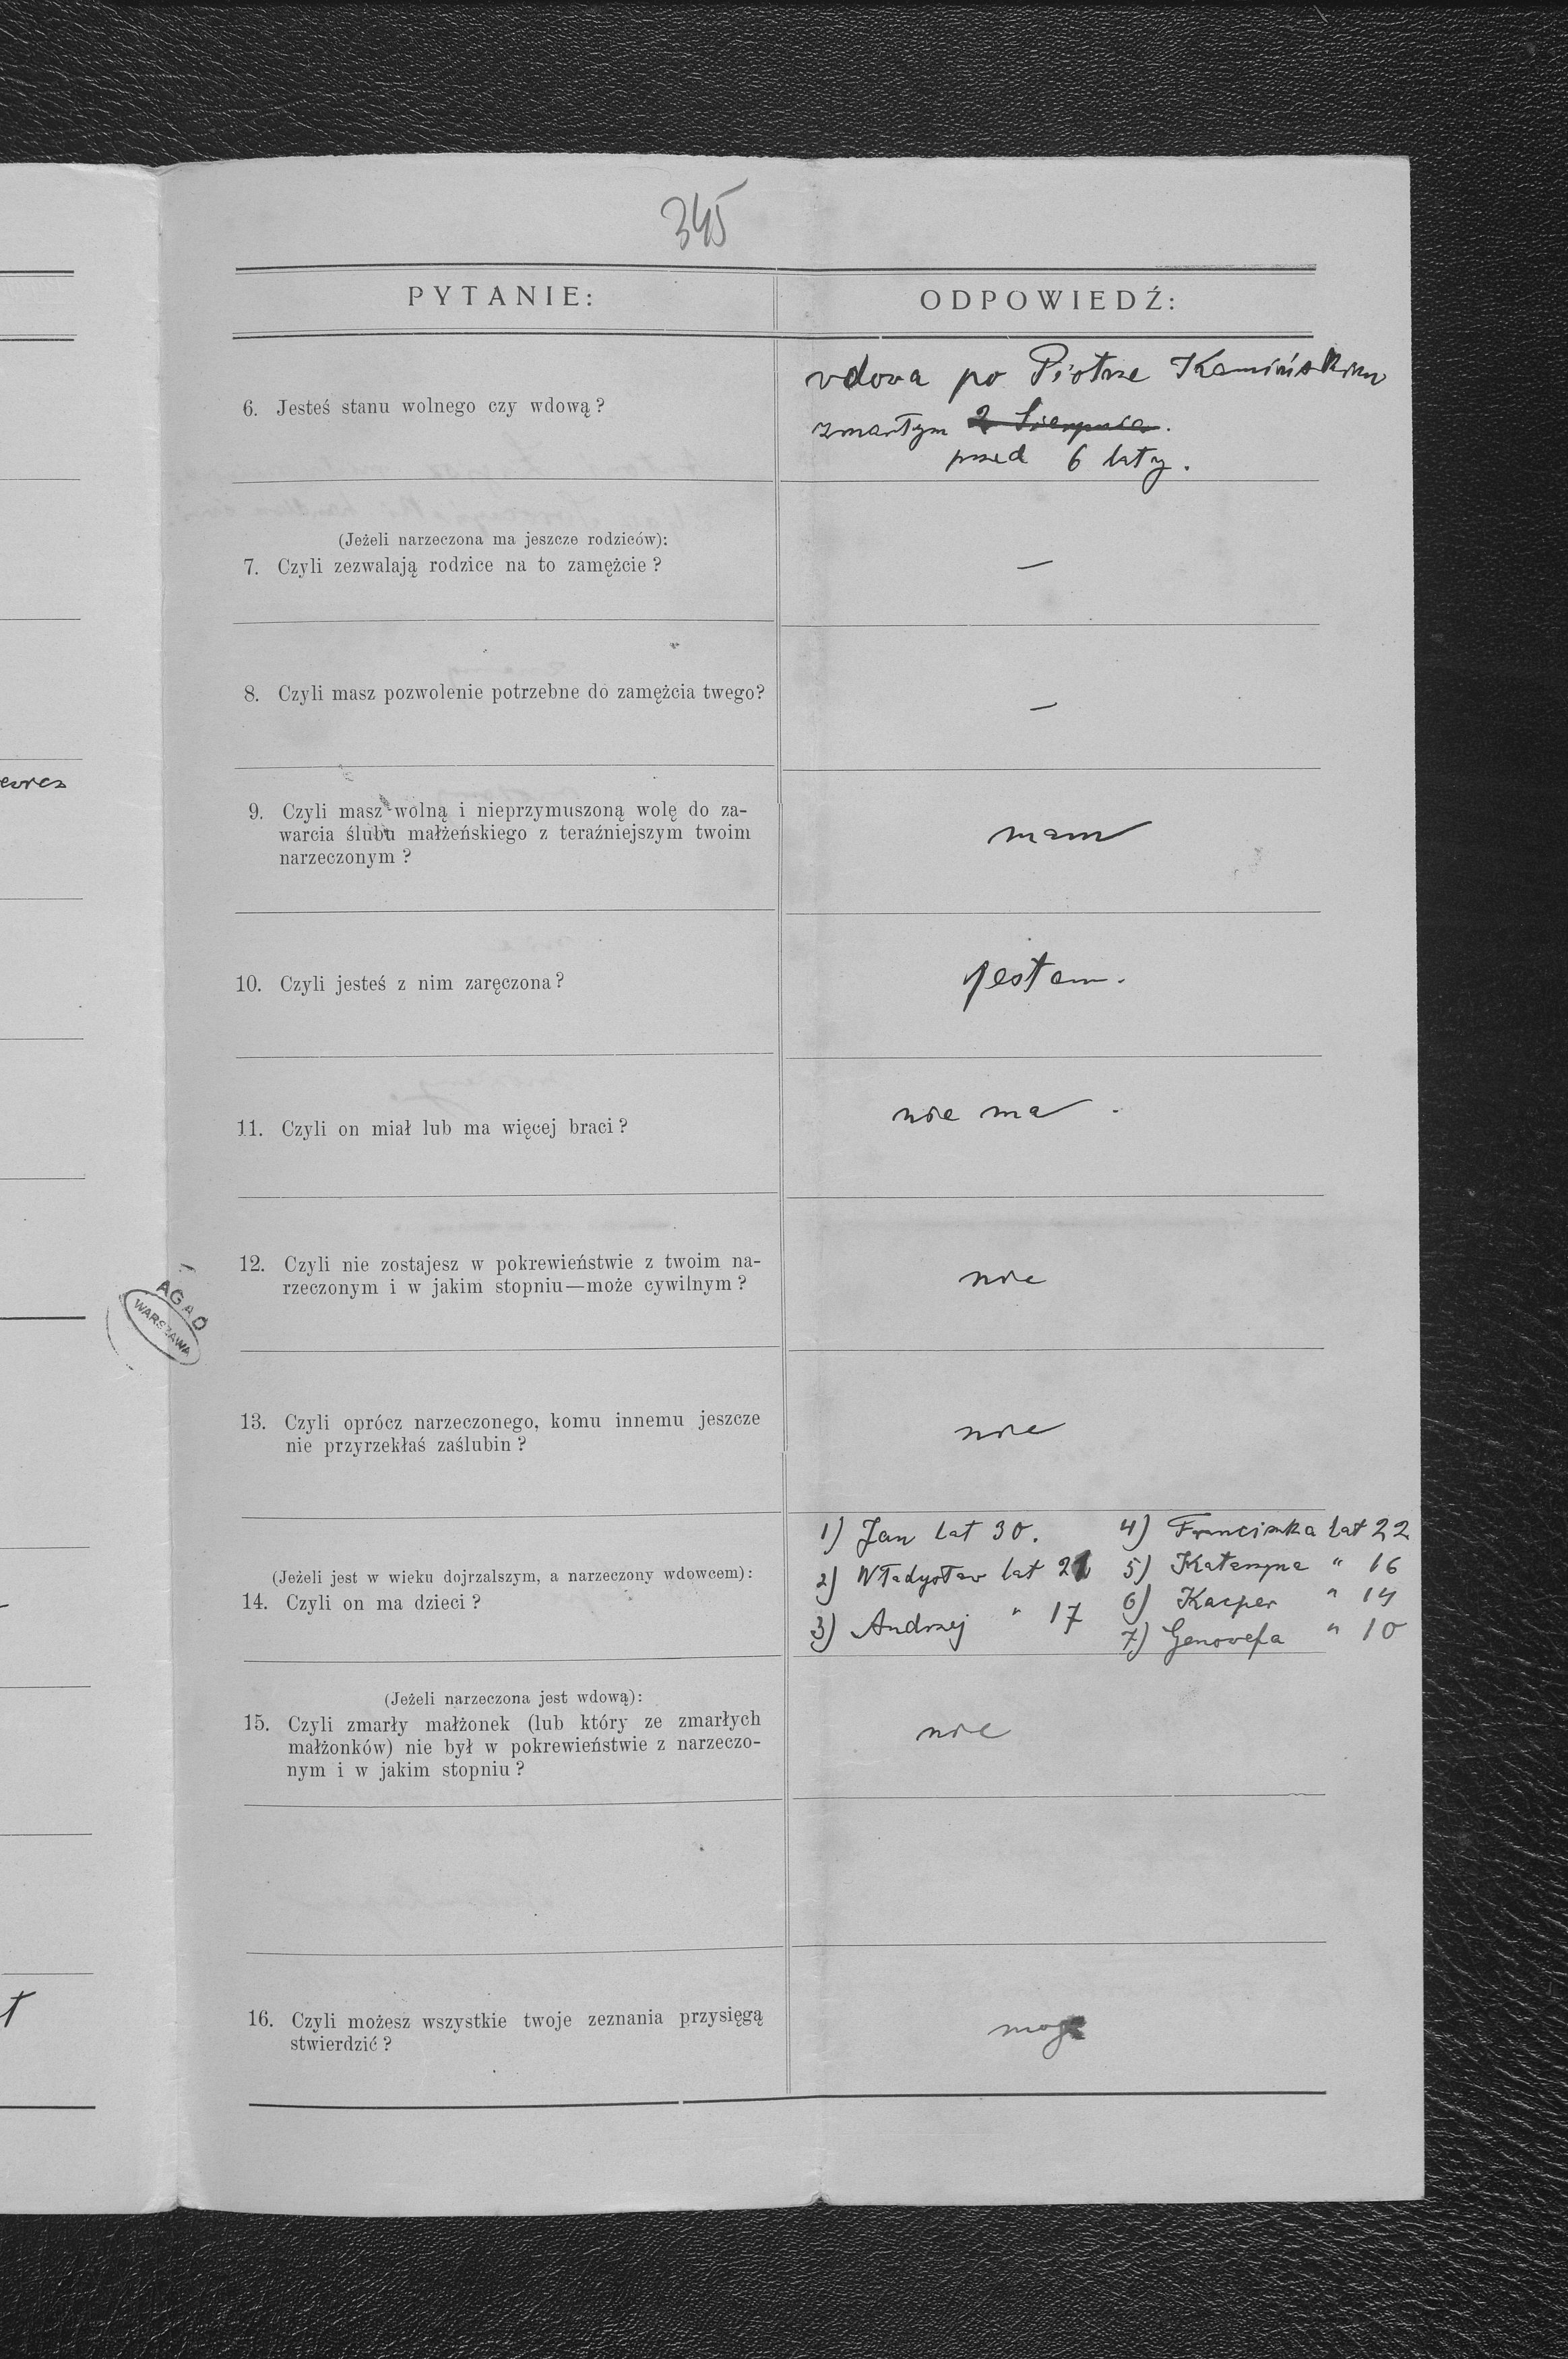 345
PYTANIE:
ODPOWIEDŹ:
6. Jesteś stanu wolnego czy wdową?
wdowa po Piotrze Kamińskim
zmarłym 2 Sierpnia.
przed 6 laty.
(Jeżeli narzeczona ma jeszcze rodziców):
7. Czyli zezwalają rodzice na to zamężcie?
—
8. Czyli masz pozwolenie potrzebne do zamężcia twego?
—
9. Czyli masz wolną i nieprzymuszoną wolę do za-
warcia ślubu małżeńskiego z teraźniejszym twoim
narzeczonym?
mam
10. Czyli jesteś z nim zaręczona?
jestem.
11. Czyli on miał lub ma więcej braci?
nie ma.
12. Czyli nie zostajesz w pokrewieństwie z twoim na-
rzeczonym i w jakim stopniu—może cywilnym?
nie
AGAD
WARSZAWA
13. Czyli oprócz narzeczonego, komu innemu jeszcze
nie przyrzekłaś zaślubin?
nie
(Jeżeli jest w wieku dojrzalszym, a narzeczony wdowcem):
14. Czyli on ma dzieci?
1) Jan lat 30.
2) Władysław lat 21
3) Andrzej " 17
4) Franciszka lat 22
5) Katarzyna " 16
6) Kacper " 14
7) Genowefa " 10
(Jeżeli narzeczona jest wdową):
15. Czyli zmarły małżonek (lub który ze zmarłych
małżonków) nie był w pokrewieństwie z narzeczo-
nym i w jakim stopniu?
nie
16. Czyli możesz wszystkie twoje zeznania przysięgą
stwierdzić?
mogę